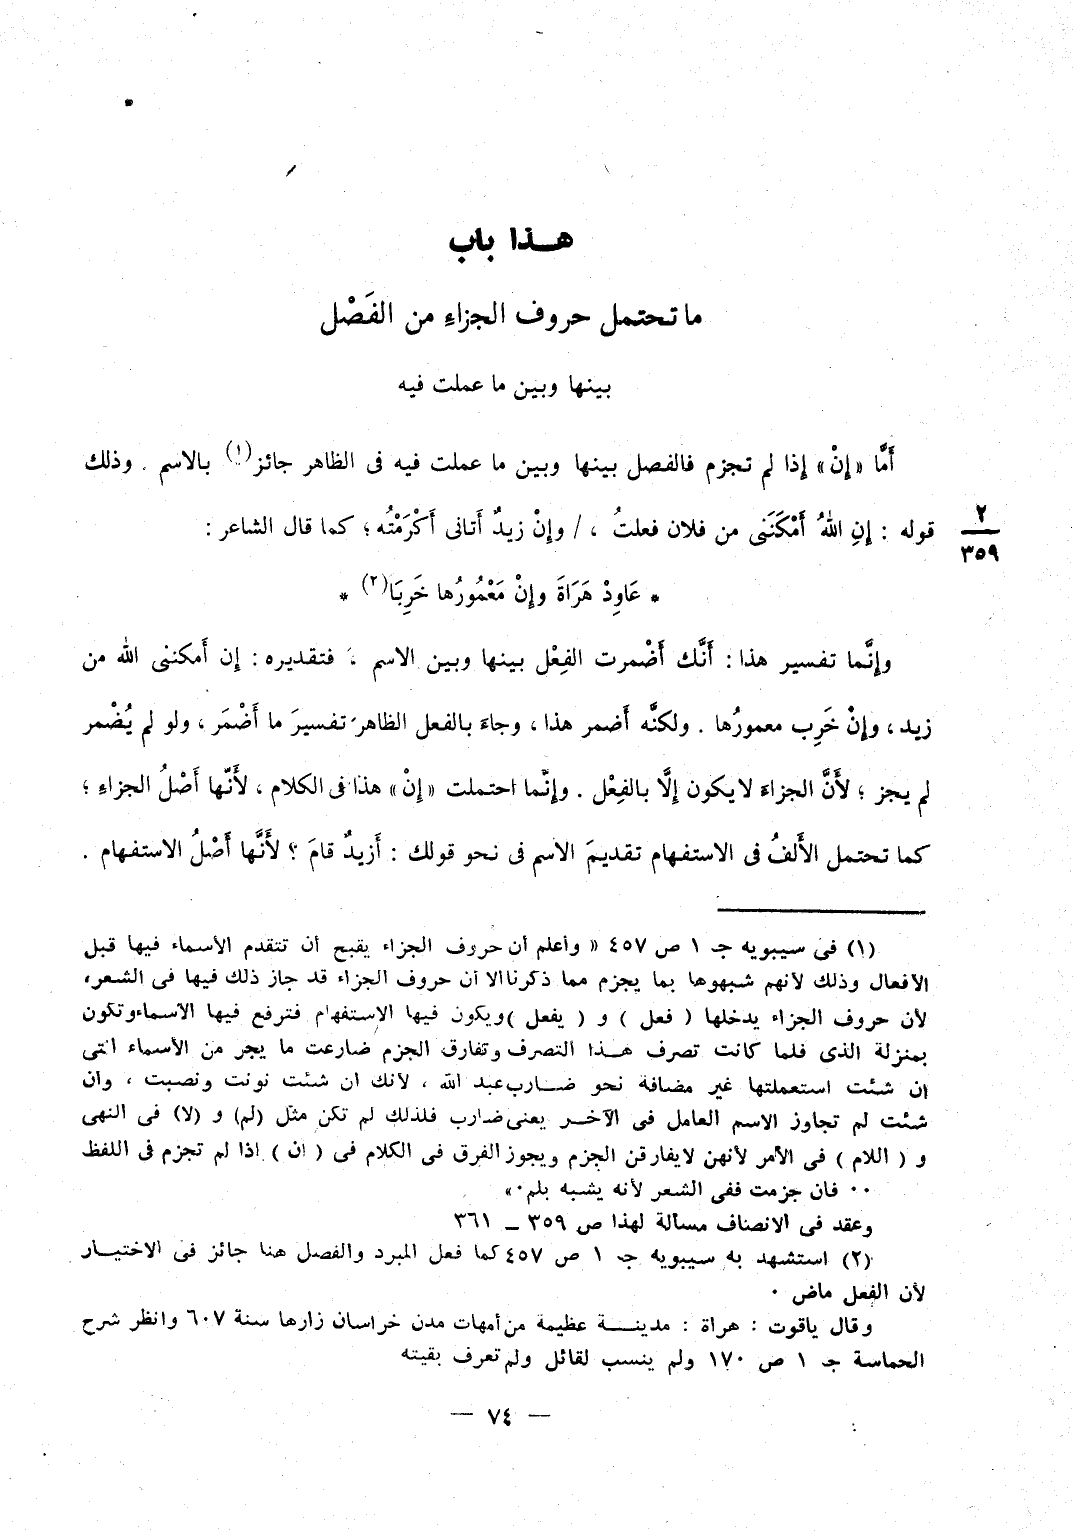 هـــذا باب
ما تحتمل حروف الجزاءِ من الفَصْل
بينها وبين ما عملت فيه
أَمَّا «إِنْ» إذا لم تجزم فالفصل بينها وبين ما عملت فيه فى الظاهر جائز(١) بالاسم . وذلك
قوله : إِنِ اللهُ أَمْكَنَنى من فلان فعلتُ ، / وإِنْ زيدٌ أَتانى أَكْرَمْتُه ؛ كما قال الشاعر :
٢
٣٥٩
* عَاوِدْ هَرَاةَ وإِنْ مَعْمُورُها خَرِبَا(٢) *
وإِنَّما تفسير هذا : أَنَّك أَضْمرت الفِعْل بينها وبين الاسم ، فتقديره : إن أَمكننى الله من
زيد ، وإِنْ خَرِب معمورُها . ولكنَّه أَضمر هذا ، وجاءَ بالفعل الظاهر تفسيرَ ما أَضْمَر ، ولو لم يُضْمر
لم يجز ؛ لأَنَّ الجزاءَ لا يكون إلَّا بالفِعْل . وإِنَّما احتملت «إِنْ» هذا فى الكلام ، لأَنَّها أَصْلُ الجزاءِ ؛
كما تحتمل الأَلفُ فى الاستفهام تقديمَ الاسم فى نحو قولك : أَزيدٌ قامَ ؟ لأَنَّها أَصْلُ الاستفهام .
(١) فى سيبويه جـ ١ ص ٤٥٧ « وأعلم أن حروف الجزاء يقبح أن تتقدم الأسماء فيها قبل
الأفعال وذلك لأنهم شبهوها بما يجزم مما ذكرنا الا أن حروف الجزاء قد جاز ذلك فيها فى الشعر،
لأن حروف الجزاء يدخلها ( فعل ) و ( يفعل ) ويكون فيها الاستفهام فترفع فيها الأسماء وتكون
بمنزلة الذى فلما كانت تصرف هـــذا التصرف وتفارق الجزم ضارعت ما يجر من الأسماء التى
إن شئت استعملتها غير مضافة نحو ضـــارب عبد الله ، لأنك ان شئت نونت ونصبت ، وان
شئت لم تجاوز الاسم العامل فى الآخـــر يعنى ضارب فلذلك لم تكن مثل (لم) و (لا) فى النهى
و ( اللام ) فى الأمر لأنهن لا يفارقن الجزم ويجوز الفرق فى الكلام فى ( ان ) اذا لم تجزم فى اللفظ
٠٠ فان جزمت ففى الشعر لأنه يشبه بلم٠»
وعقد فى الانصاف مسألة لهذا ص ٣٥٩ ـ ٣٦١
(٢) استشهد به سيبويه جـ ١ ص ٤٥٧ كما فعل المبرد والفصل هنا جائز فى الاختيـــار
لأن الفعل ماض ٠
وقال ياقوت : هراة : مدينـــة عظيمة من أمهات مدن خراسان زارها سنة ٦٠٧ وانظر شرح
الحماسة جـ ١ ص ١٧٠ ولم ينسب لقائل ولم تعرف بقيته
— ٧٤ —